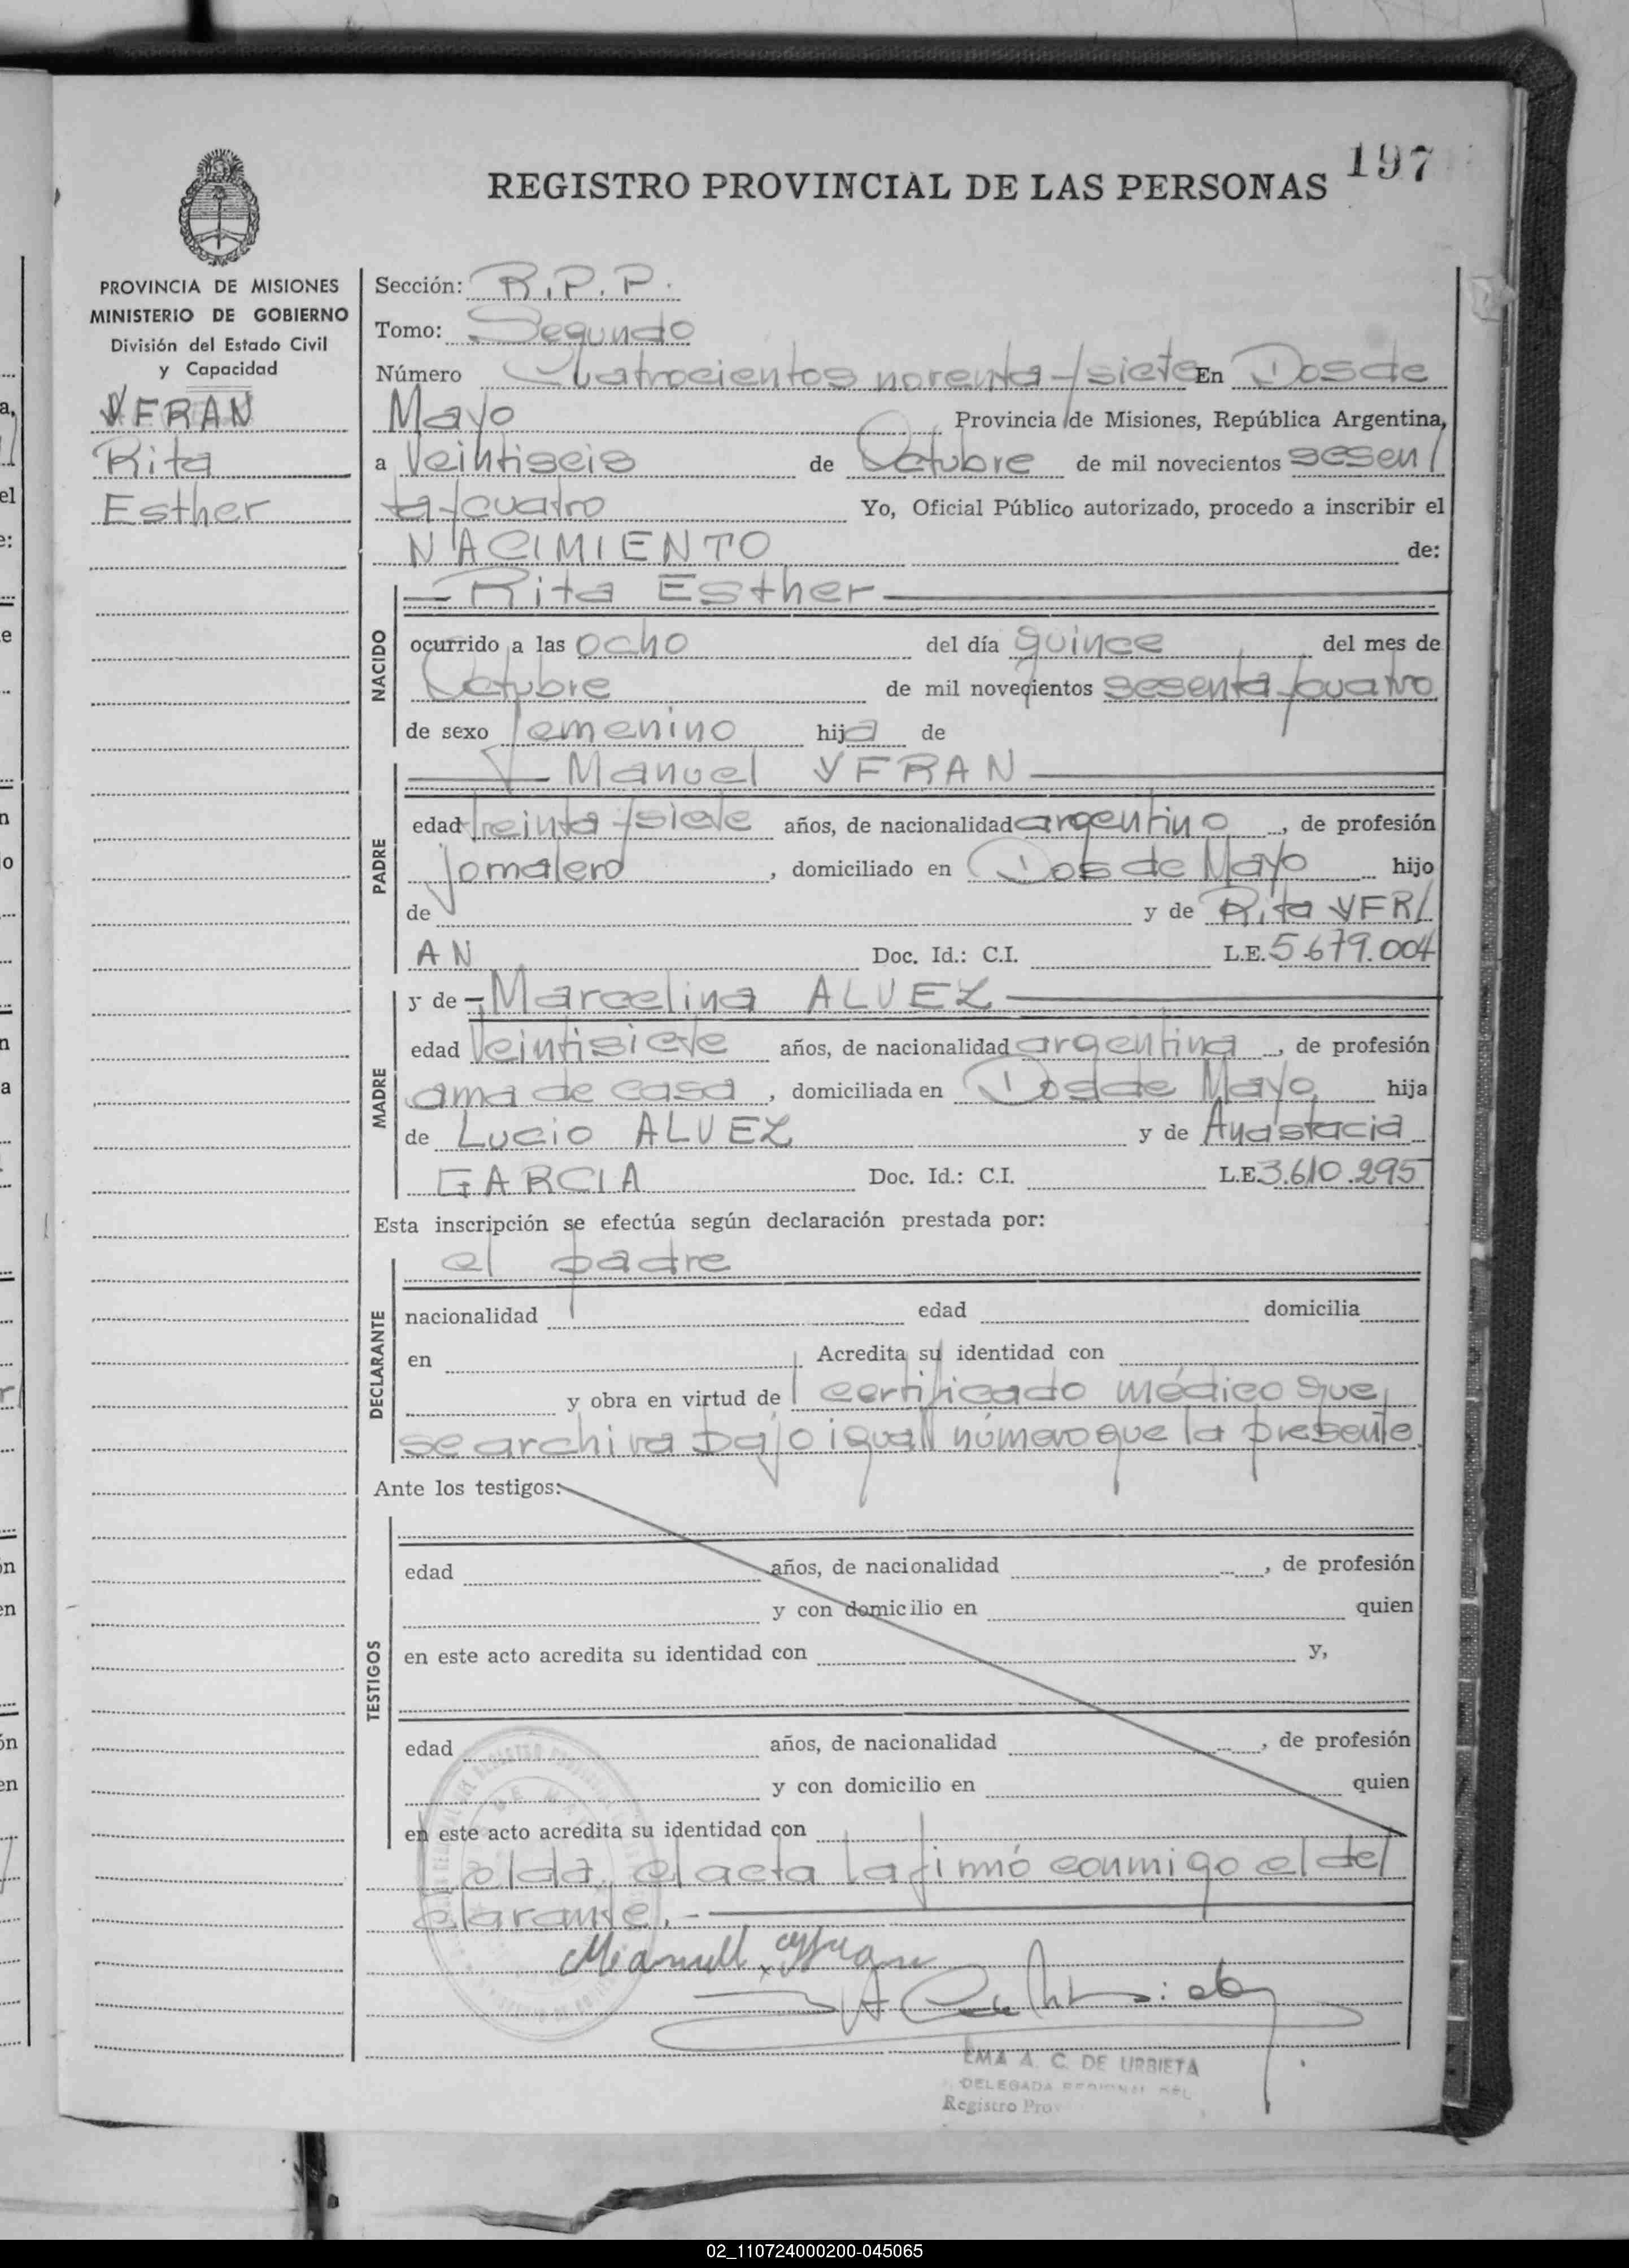 197
REGISTRO PROVINCIAL DE LAS PERSONAS
PROVINCIA DE MISIONES
MINISTERIO DE GOBIERNO
División del Estado Civil
y Capacidad
YFRAN
Rita
Esther
Sección: R.P.P.
Tomo: Segundo
Número Cuatrocientos noventa y siete En Dos de
Mayo Provincia de Misiones, República Argentina,
a Veintiseis de Octubre de mil novecientos sesen/
ta y cuatro Yo, Oficial Público autorizado, procedo a inscribir el
NACIMIENTO de:
NACIDO
Rita Esther
ocurrido a las ocho del día quince del mes de
Octubre de mil novecientos sesenta y cuatro
de sexo femenino hija de
PADRE
Manuel YFRAN
edad treinta y siete años, de nacionalidad argentino, de profesión
jornalero, domiciliado en Dos de Mayo hijo
de y de Rita YFR/
AN Doc. Id.: C.I. L.E. 5.679.004
MADRE
y de Marcelina ALVEZ
edad Veintisiete años, de nacionalidad argentina, de profesión
ama de casa, domiciliada en Dos de Mayo, hija
de Lucio ALVEZ y de Anastacia
GARCIA Doc. Id.: C.I. L.E. 3.610.295
Esta inscripción se efectúa según declaración prestada por:
DECLARANTE
el padre
nacionalidad edad domicilia
en Acredita su identidad con
y obra en virtud de certificado médico que
se archiva bajo igual número que la presente
Ante los testigos:
TESTIGOS
edad años, de nacionalidad , de profesión
y con domicilio en quien
en este acto acredita su identidad con y,
edad años, de nacionalidad , de profesión
y con domicilio en quien
en este acto acredita su identidad con
Leída el acta la firmó conmigo el de/
clarante.-
Manuel Yfran
EMA A. C. DE URBIETA
DELEGADA REGIONAL DEL
Registro Prov
02_110724000200-045065